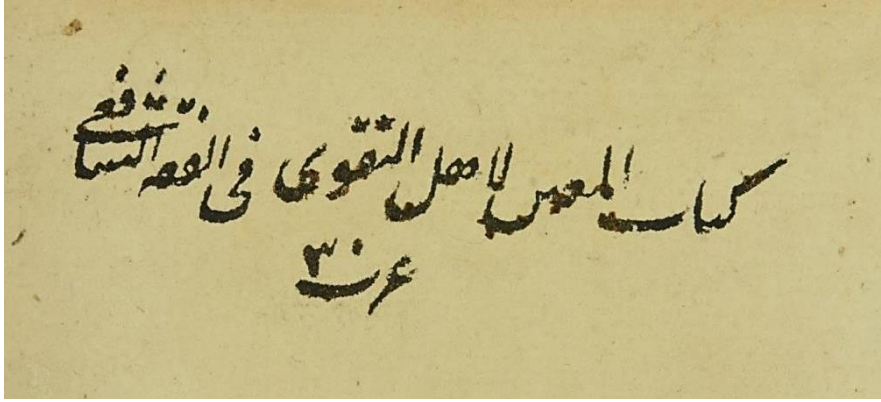 كتاب المعين لاهل التقوى في الفقه الشافعي